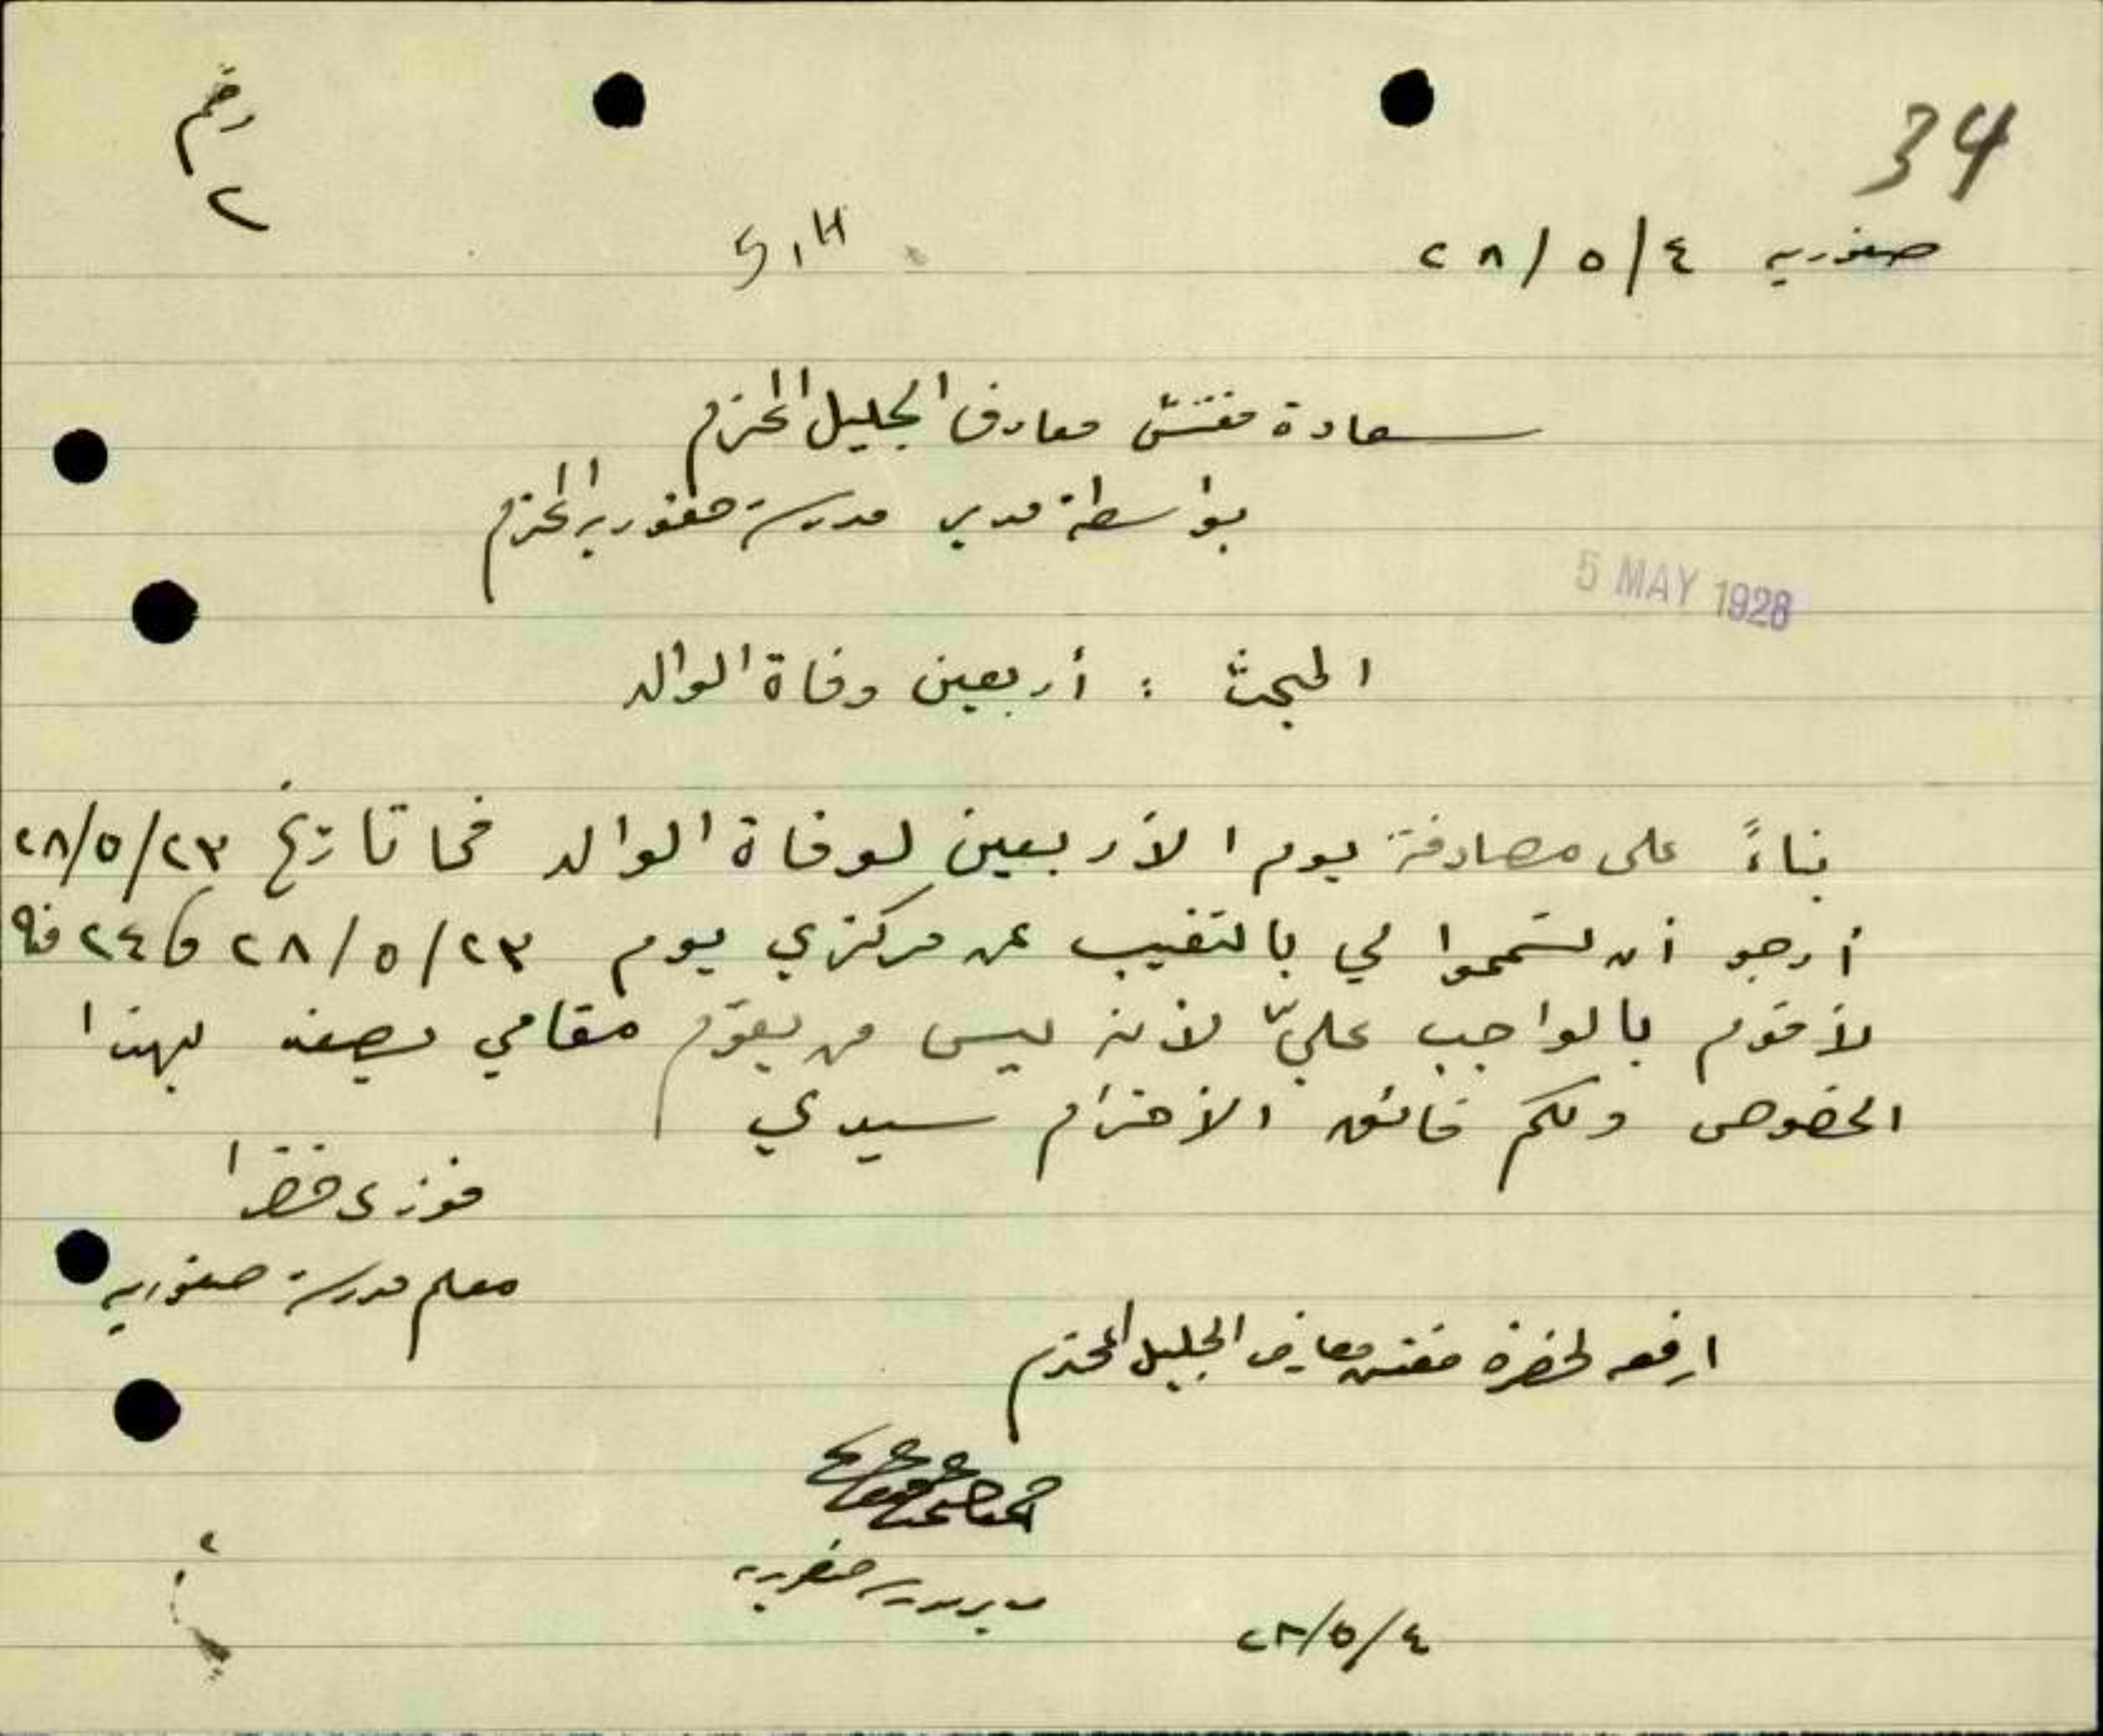 34
رقم
٢
صفوريه ٢٨/٥/٤
سعادة مفتش معارف الجليل المحترم
بواسطة مدير مدرسة صفوريه المحترم
5 MAY 1928
المبحث : أربعين وفاة الوالد
بناءً على مصادفة يوم الأربعين لوفاة الوالد في تاريخ ٢٨/٥/٢٣
أرجو أن تسمحوا لي بالتغيب عن مركزي يوم ٢٨/٥/٢٣ و ٢٤ منه
لأقوم بالواجب عليّ لأنه ليس من يقوم مقامي بصفه بهذا
الخصوص ولكم فائق الأحترام سيدي
فوزي خضرا
معلم مدرسة صفوريه
ارفعه لحضرة مفتش معارف الجليل المحترم
مدير مدرسة صفوريه
٢٨/٥/٤